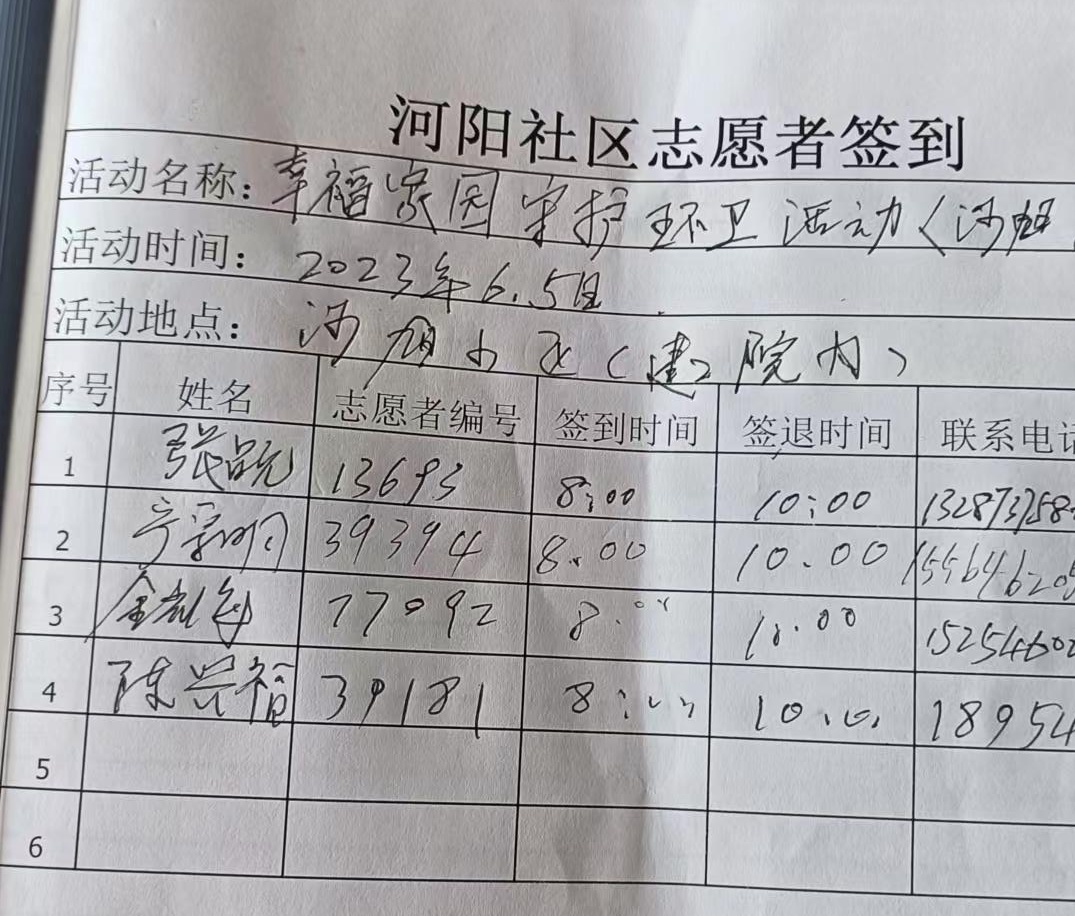 河阳社区志愿者签到
活动名称：幸福家园守护环卫活动（沙
活动时间：2023年6.5日
活动地点：沙 小区（建院内）
序号 姓名 志愿者编号 签到时间 签退时间 联系电话
1 张 13693 8:00 10:00 132873758
2 39394 8.00 10.00 155646205
3 77092 8:00 10.00 15254600
4 陈兴福 39181 8:00 10.00 18954
5
6